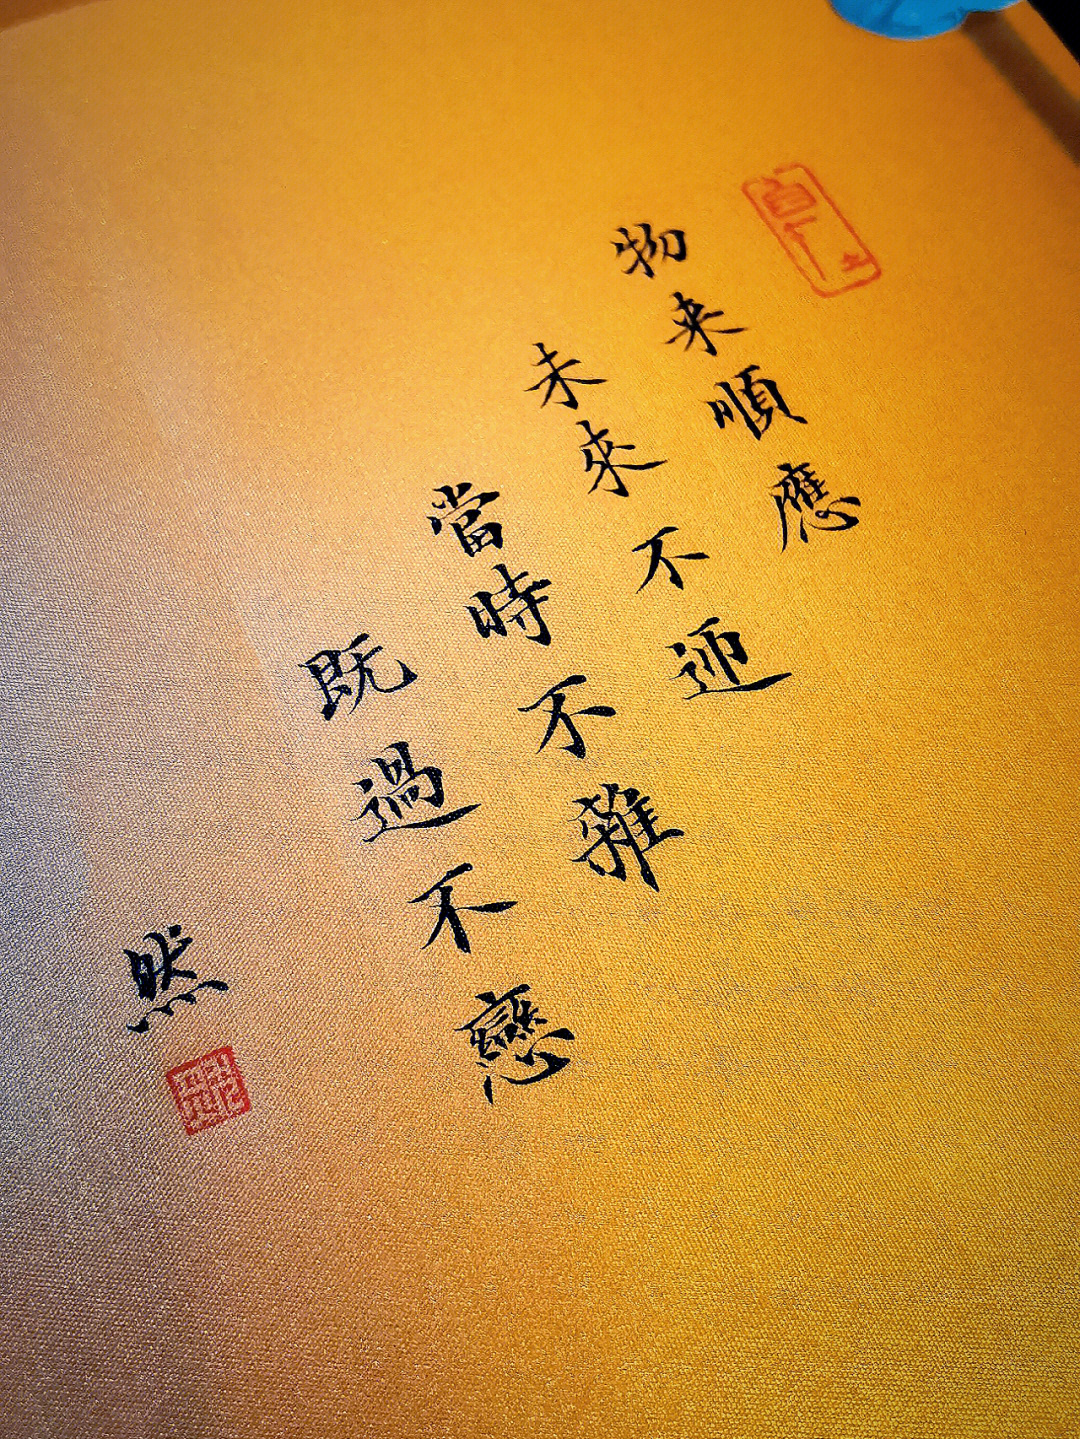 物来順應
未來不迊
當時不雜
既過不戀
然